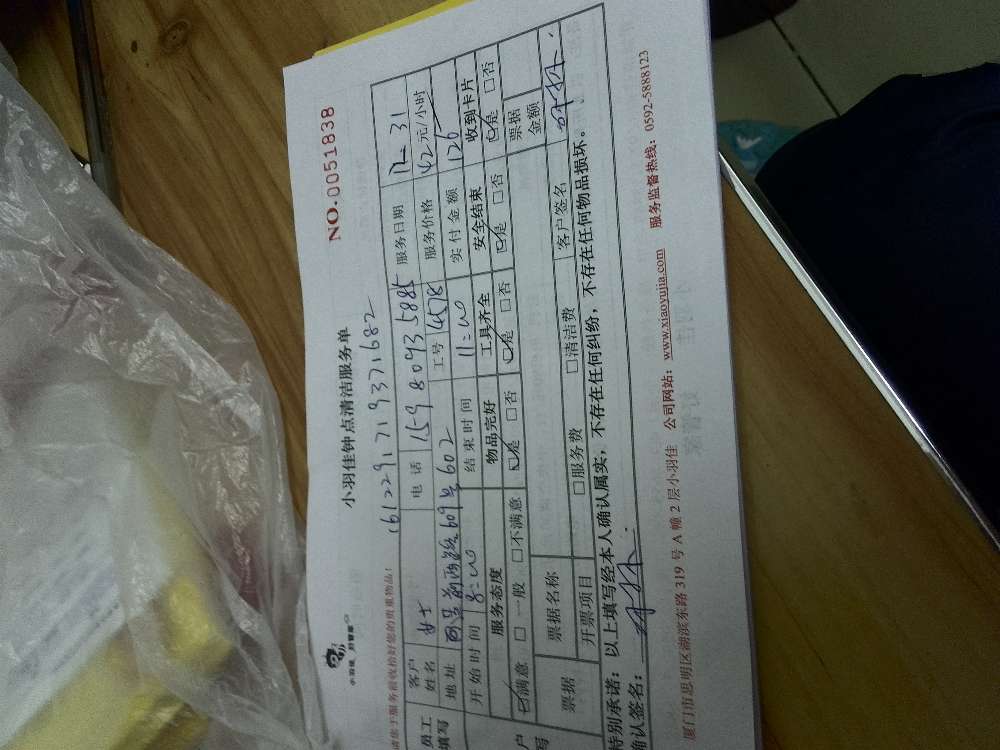 小羽佳钟点清洁服务单
NO.0051838
小羽佳，好管家
请您于服务前收拾好您的贵重物品！
1612291719371682
员工填写
客户姓名 女士 电话 159 8093 5885 服务日期 12.31
地址 609号602 工号 14518 服务价格 42元/小时
开始时间 8:00 结束时间 11:00 实付金额 126
服务态度 物品完好 工具齐全 安全结束 收到卡片
☑满意 □一般 □不满意 ☑是 □否 ☑是 □否 ☑是 □否 ☑是 □否
票据 票据名称 票据金额
开票项目 □服务费 □清洁费 客户签名
特别承诺：以上填写经本人确认属实，不存在任何纠纷，不存在任何物品损坏。
确认签名：
厦门市思明区湖滨东路 319 号 A 幢 2 层小羽佳 公司网站：www.xiaoyujia.com 服务监督热线：0592-5888123